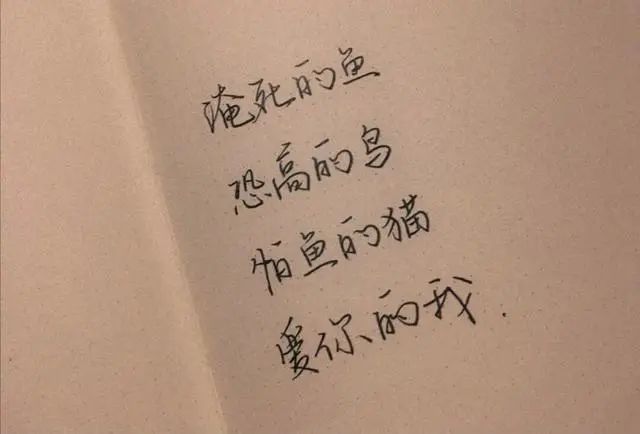 淹死的鱼
恐高的鸟
怕鱼的猫
爱你的我.